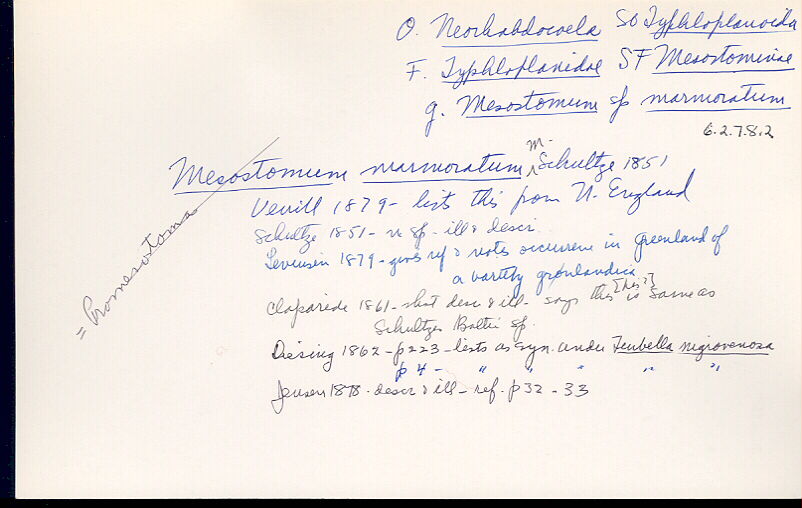 O. Neorhabdocoela SO Typhloplanoida
F. Typhloplanidae SF Mesostominae
g. Mesostomum sp marmoratum
6.2.7.8.2
Mesostomum marmoratum M. Schultze 1851
= Promesostoma
Verrill 1879 - lists this from N. England
Schultze 1851 - n sp - ill & descr.
Levinsen 1879 - gives ref & notes occurrence in Greenland of
a variety grønlandica
Claparede 1861 - short desc & ill - says this [his?] is same as
Schultzes Baltic sp.
Diesing 1862 - p 223 - lists as syn. under Turbella nigrovenosa
p 4 - " " " " "
Jensen 1878 - descr & ill - ref. p 32 - 33